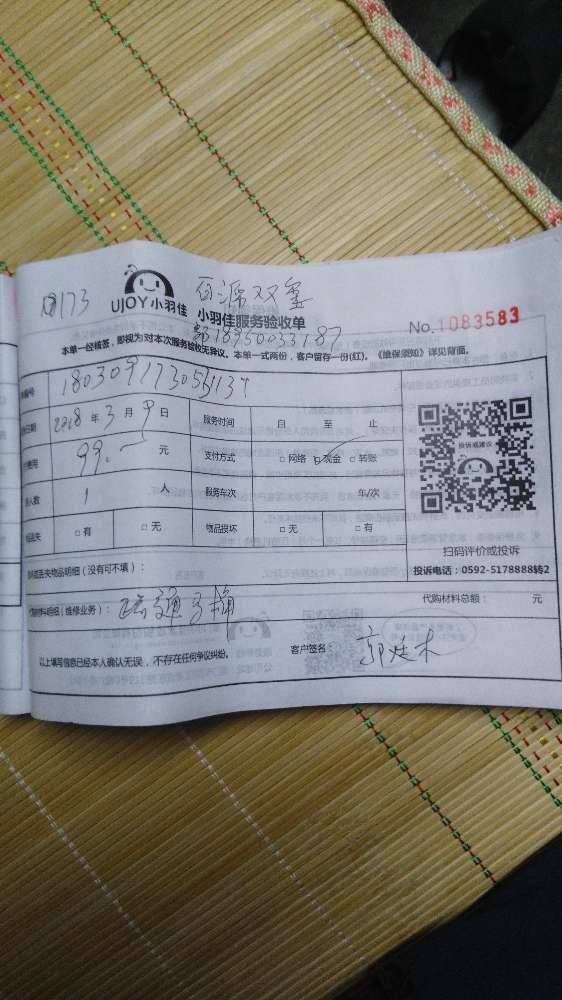 百源双玺
UJOY小羽佳 小羽佳服务验收单 No.1083583
18950033187
本单一经核签，即视为对本次服务验收无异议。本单一式两份，客户留存一份(红)。《维保须知》详见背面。
编号
日期 2018 年 3 月 9 日 服务时间 自 至 止
费用 99.— 元 支付方式 □ 网络 □ 现金 □ 转账
人数 1 人 服务车次 车/次
丢失 □ 有 □ 无 物品损坏 □ 无 □ 有
投诉或建议
扫码评价或投诉
投诉电话：0592-5178888转2
丢失物品明细（没有可不填）：
材料明细（维修业务）： 疏通马桶 代购材料总额： 元
以上填写信息已经本人确认无误，不存在任何争议纠纷。 客户签名：